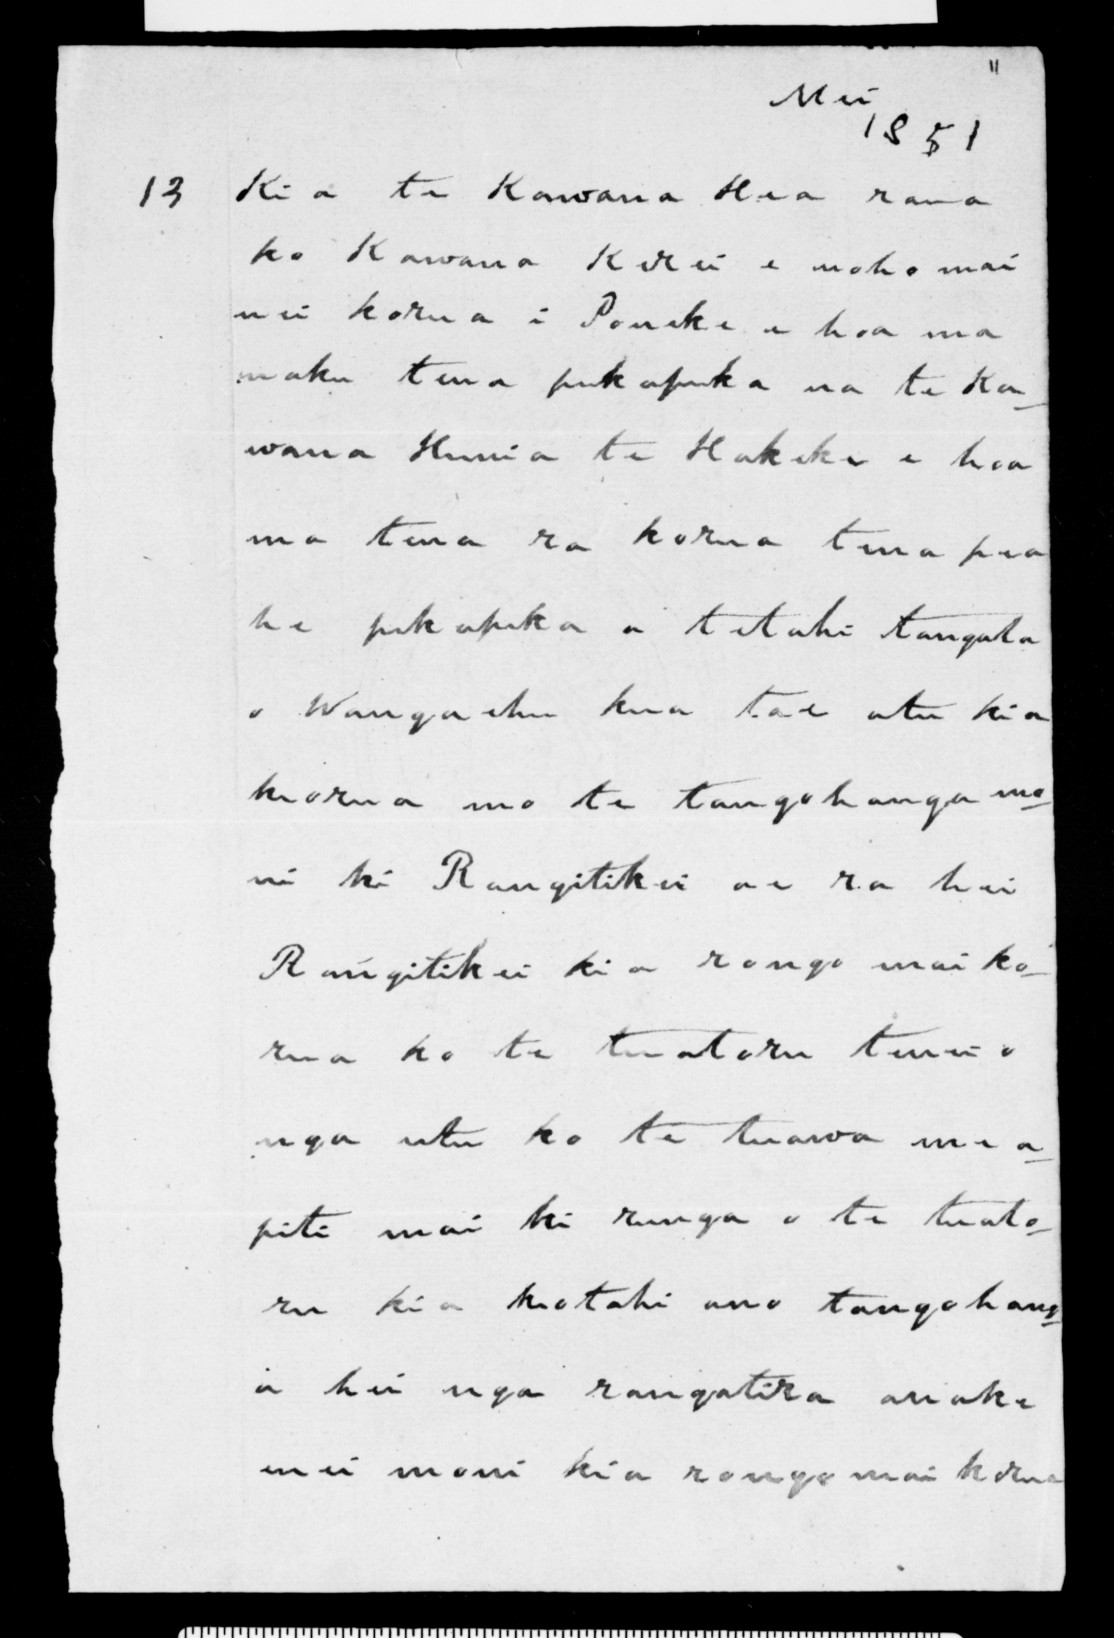 "
Mei
1851
13 Ki a te Kawana Hea raua
ko Kawana Kerei e noho mai
nei korua i Poneke e hoa ma
maku tena pukapuka na te Ka-
wana Hunia te Hakeke e hoa
ma tena ra korua tena pea
he pukapuka a tetahi tangata
o Wangaehu kua tae atu kia
korua mo te tangohanga mo-
ni ki Rangitikei ae ra hei
Rangitikei kia rongo mai ko-
rua ko te tuatoru tenei o
nga utu ko te tuawa me a-
piti mai ki runga o te tuato-
ru kia kotahi ano tangohang-
a hei nga rangatira anake
enei moni kia rongo mai korua